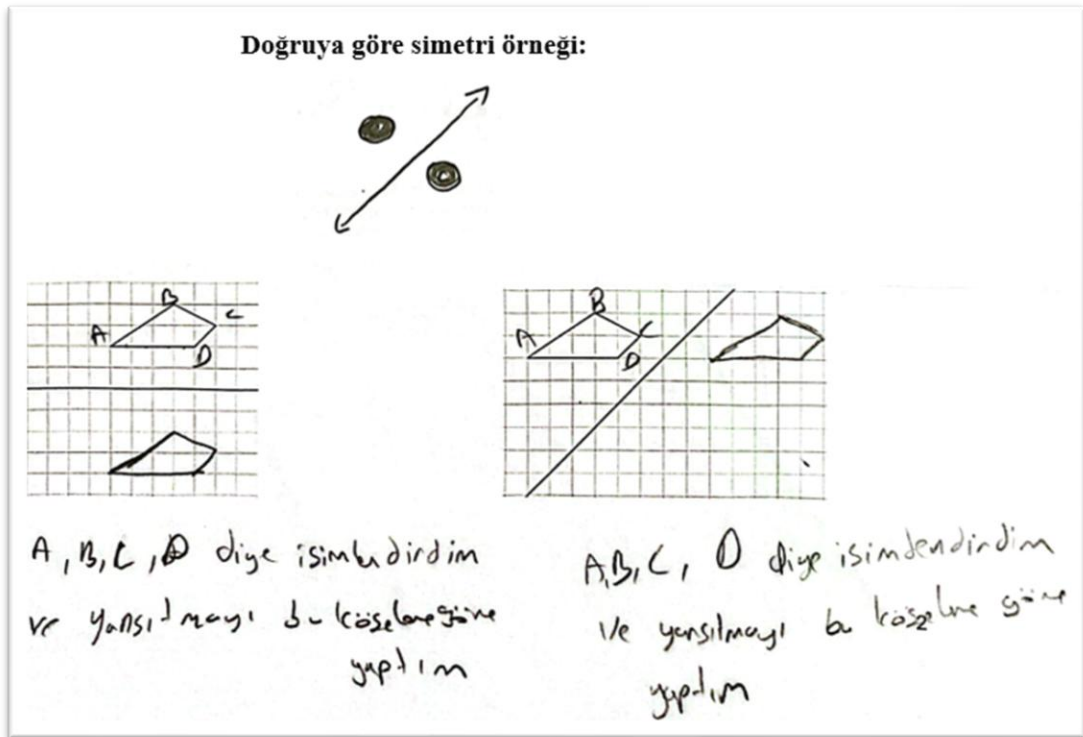 Doğruya göre simetri örneği:
B
A
C
D
B
A
C
D
A, B, C, D diye isimlendirdim
ve yansıtmayı bu köşelere göre
yaptım
A, B, C, D diye isimlendirdim
ve yansılmayı bu köşelere göre
yaptım